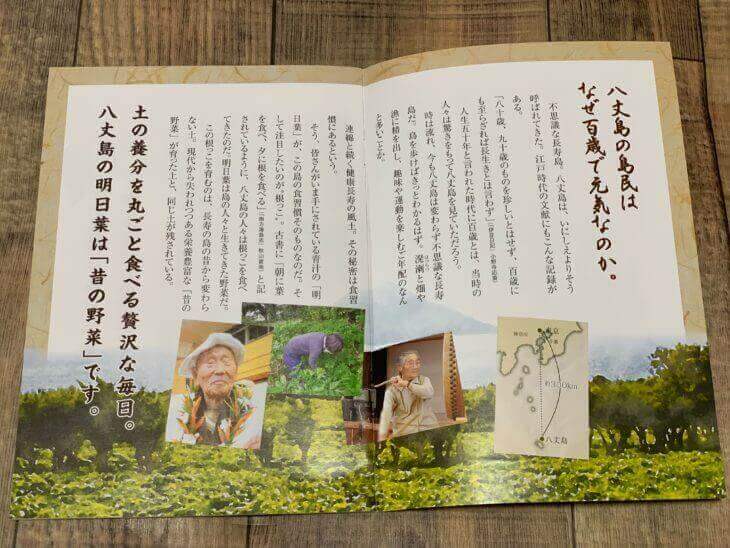 八丈島の島民は
なぜ百歳で元気なのか。
不思議な長寿島。八丈島は、いにしえよりそう
呼ばれてきた。江戸時代の文献にもこんな記録が
ある。
「八十歳、九十歳のものを珍しいとはせず、百歳に
も至らざれば長生きとは言わず」
人生五十年と言われた時代に百歳とは、当時の
人々は驚きをもって八丈島を見ていただろう。
時は流れ、今も八丈島は変わらず不思議な長寿
島だ。島を歩けばきっとわかるはず。溌溂と畑や
漁に精を出し、趣味や運動を楽しむご年配のなん
と多いことか。
連綿と続く健康長寿の風土。その秘密は食習
慣にあるという。
そう、皆さんがいま手にされている青汁の「明
日葉」が、この島の食習慣そのものなのだ。そ
して注目したいのが、根っこ。古書に「一朝に葉
を食べ、夕に根を食べる」
と記
されているように、八丈島の人々は根っこを食べ
てきたのだ。明日葉は島の人々と生きてきた野菜だ。
この根っこを育むのは、長寿の島の昔から変わら
ない土。現代から失われつつある栄養豊富な「昔の
野菜」が育った土と、同じ土が残されている。
土の養分を丸ごと食べる贅沢な毎日。
八丈島の明日葉は「昔の野菜」です。
東京
八丈島